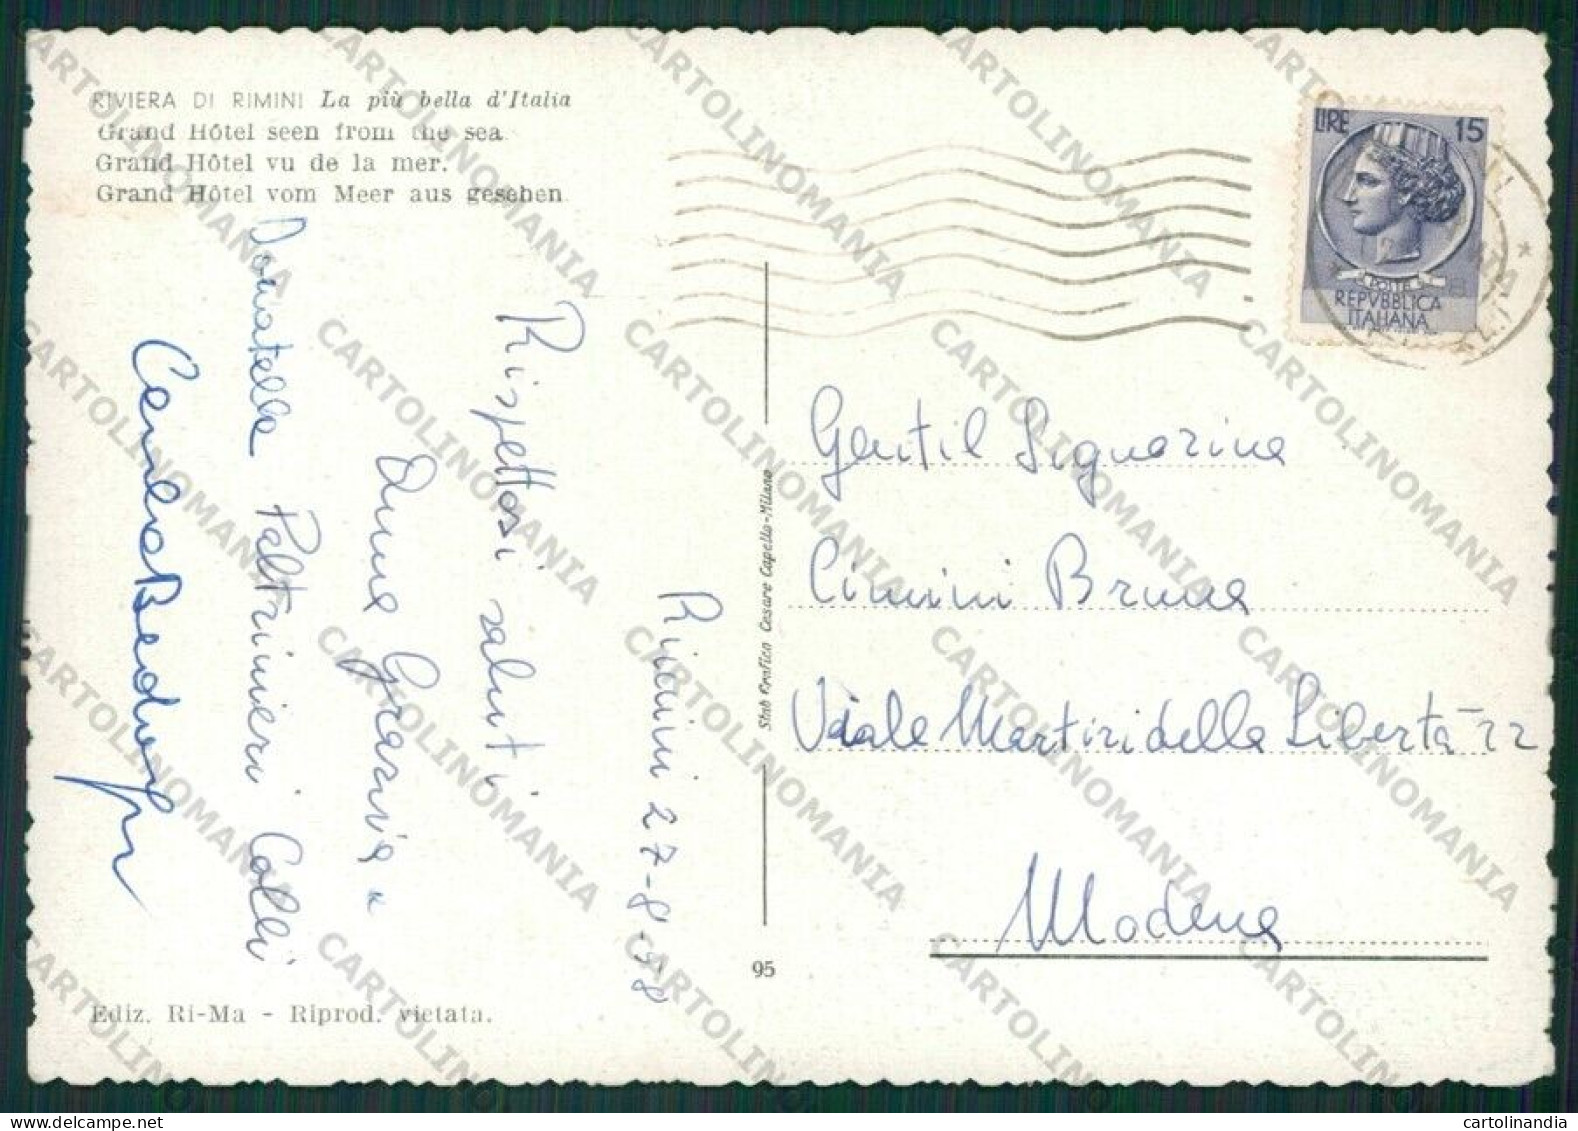 RIVIERA DI RIMINI La più bella d'Italia
Grand Hôtel seen from the sea
Grand Hôtel vu de la mer.
Grand Hôtel vom Meer aus gesehen
LIRE 15
POSTE
REPVBBLICA
ITALIANA
Rimini 27-8-58
Rispettosi saluti
Anna Grazia
Donatella Paltrinieri Colli
Gentil Signorina
Cimini Bruna
Viale Martiri della Libertà 22
Modena
Stab Grafico Cesare Capello-Milano
95
Ediz. Ri-Ma - Riprod. vietata.
CARTOLINOMANIA
cartolinandia